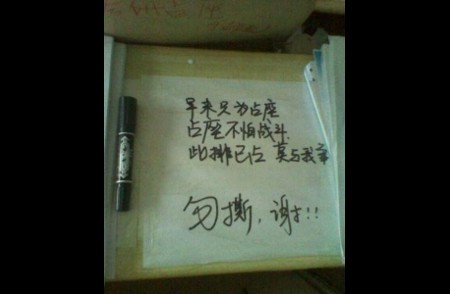 早来只为占座
占座不怕战斗
此排已占 莫与我争
勿撕,谢!!